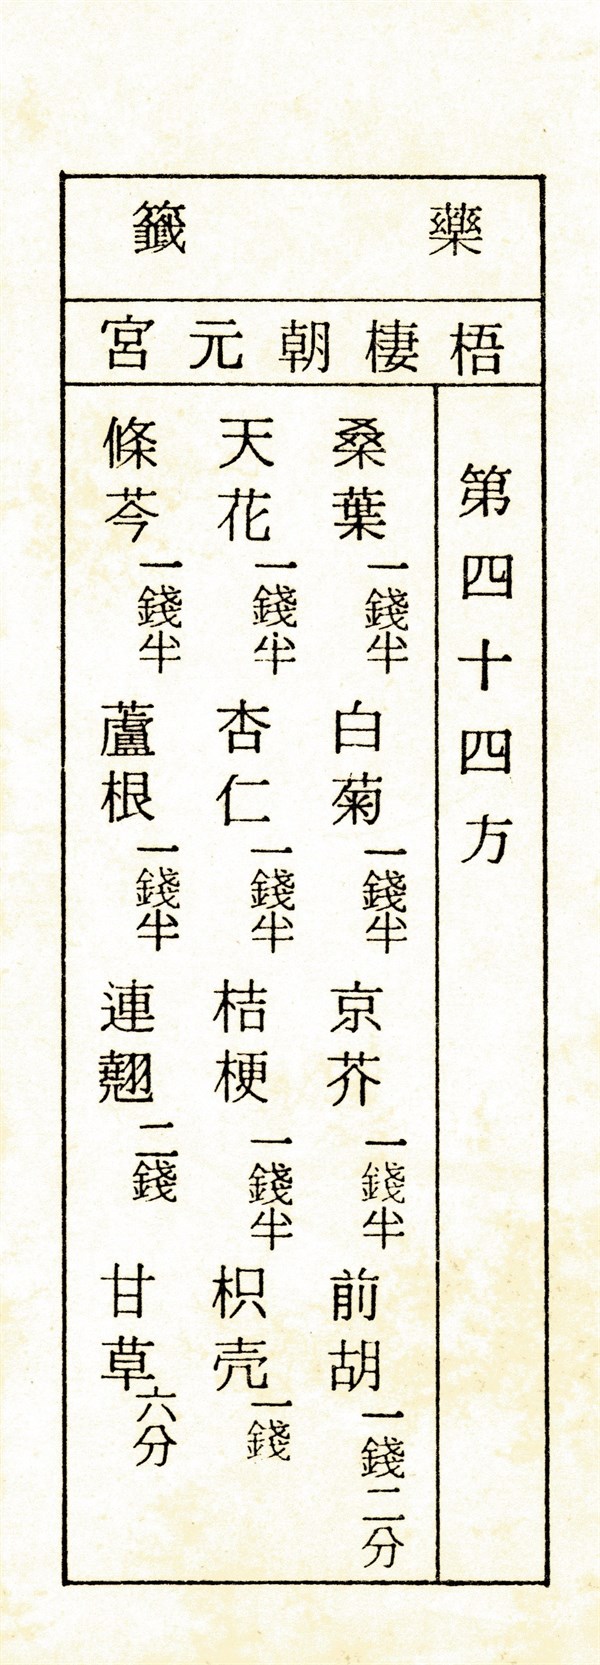 藥籤
梧棲朝元宮
第四十四方
桑葉一錢半 白菊一錢半 京芥一錢半 前胡一錢二分
天花一錢半 杏仁一錢半 桔梗一錢半 枳壳一錢
條芩一錢半 蘆根一錢半 連翹二錢 甘草六分